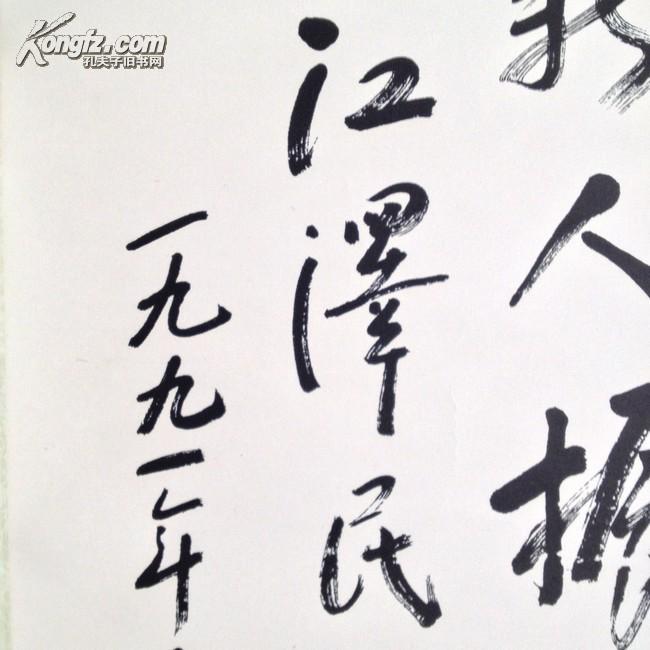 人振
江澤民
一九九一年
Kongfz.com
孔夫子旧书网